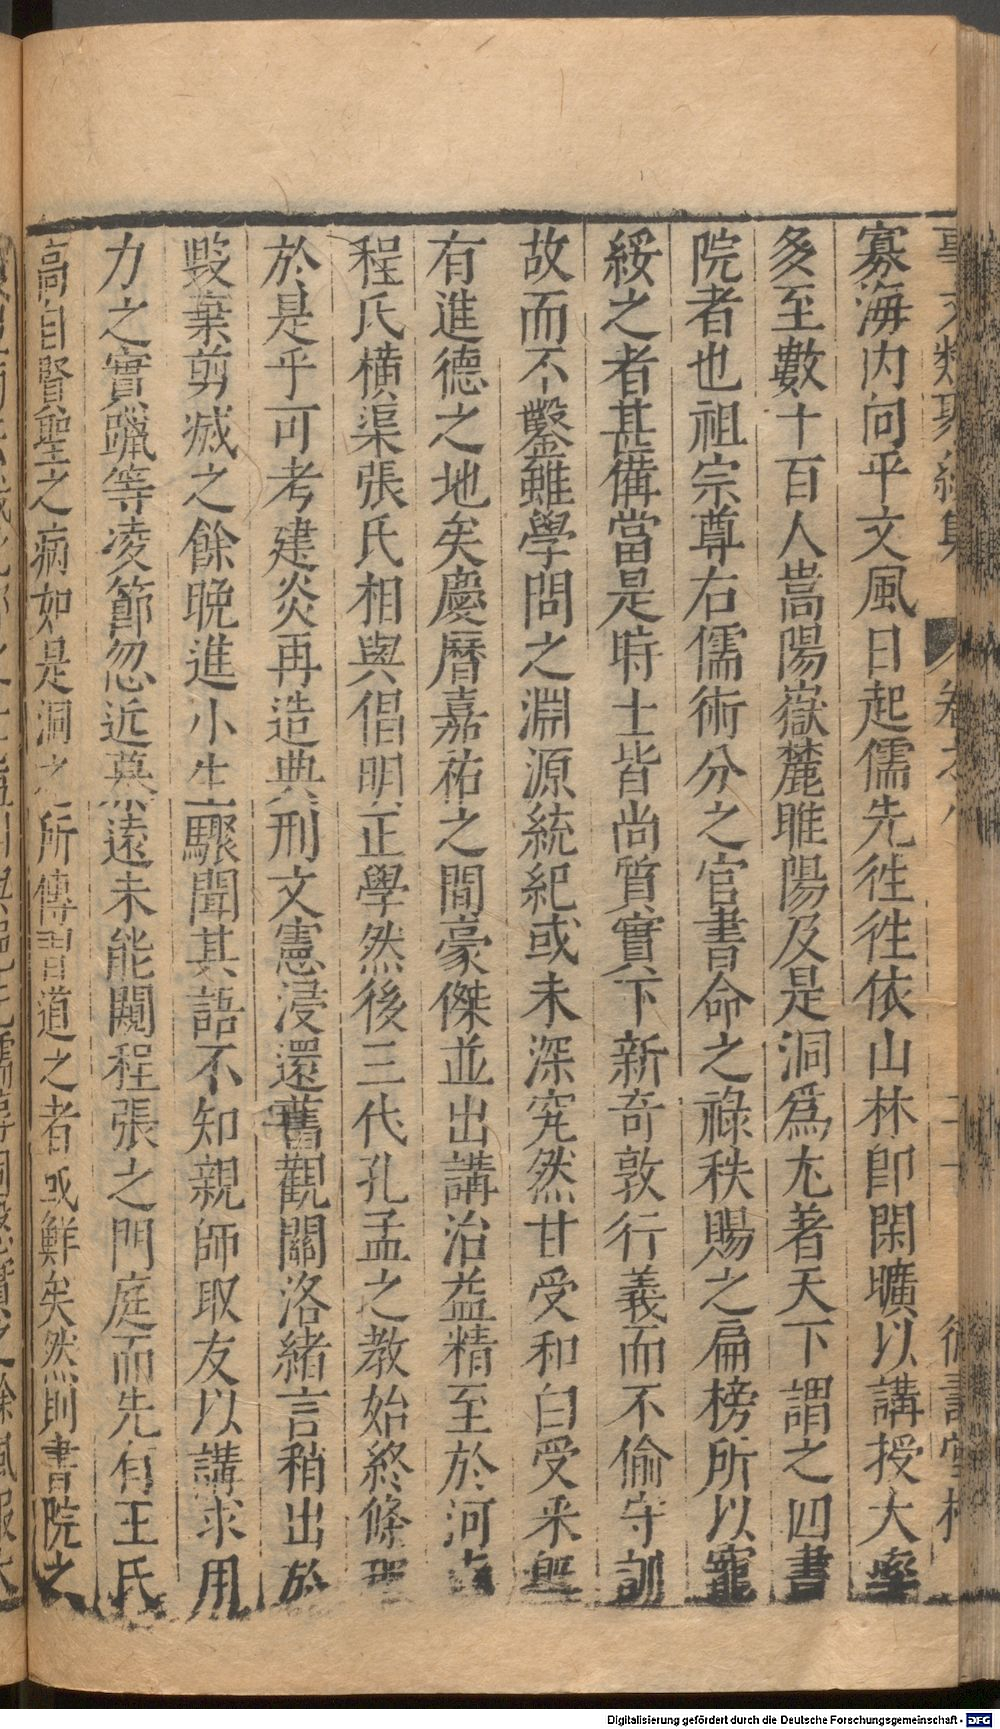 事文類聚續集 卷之八
寡海内向平文風日起儒先徃徃依山林卽閑曠以講授大率
多至數十百人嵩陽嶽麓睢陽及是洞爲尤著天下謂之四書
院者也祖宗尊右儒術分之官書命之祿秩賜之扁榜所以寵
綏之者甚備當是時士皆尚質實下新奇敦行義而不偷守訓
故而不鑿雖學問之淵源統紀或未深究然甘受和白受采
有進德之地矣慶曆嘉祐之間豪傑並出講治益精至於河
程氏橫渠張氏相與倡明正學然後三代孔孟之教始終條理
於是乎可考建炎再造典刑文憲浸還舊觀關洛緒言稍出於
毀棄剪滅之餘晚進小生驟聞其語不知親師取友以講求用
力之實躐等凌節忽近慕遠未能闚程張之門庭而先有王氏
高自賢聖之病如是洞之所傳習道之者或鮮矣然則書院之
Digitalisierung gefördert durch die Deutsche Forschungsgemeinschaft - DFG